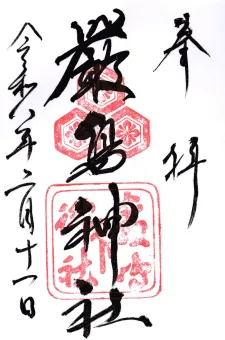 奉拝
厳島神社
令和八年二月十一日